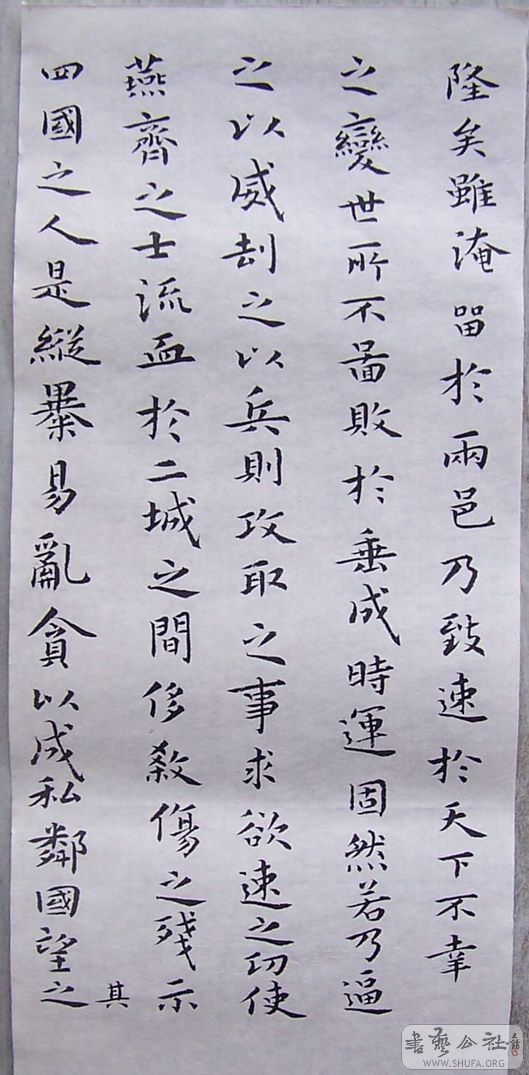 隆矣雖淹留於兩邑乃致速於天下不幸
之變世所不啚敗於垂成時運固然若乃逼
之以威劫之以兵則攻取之事求欲速之功使
燕齊之士流血於二城之間侈殺傷之殘示
四國之人是縱暴易亂貪以成私鄰國望之
其
書藝公社
WWW.SHUFA.ORG